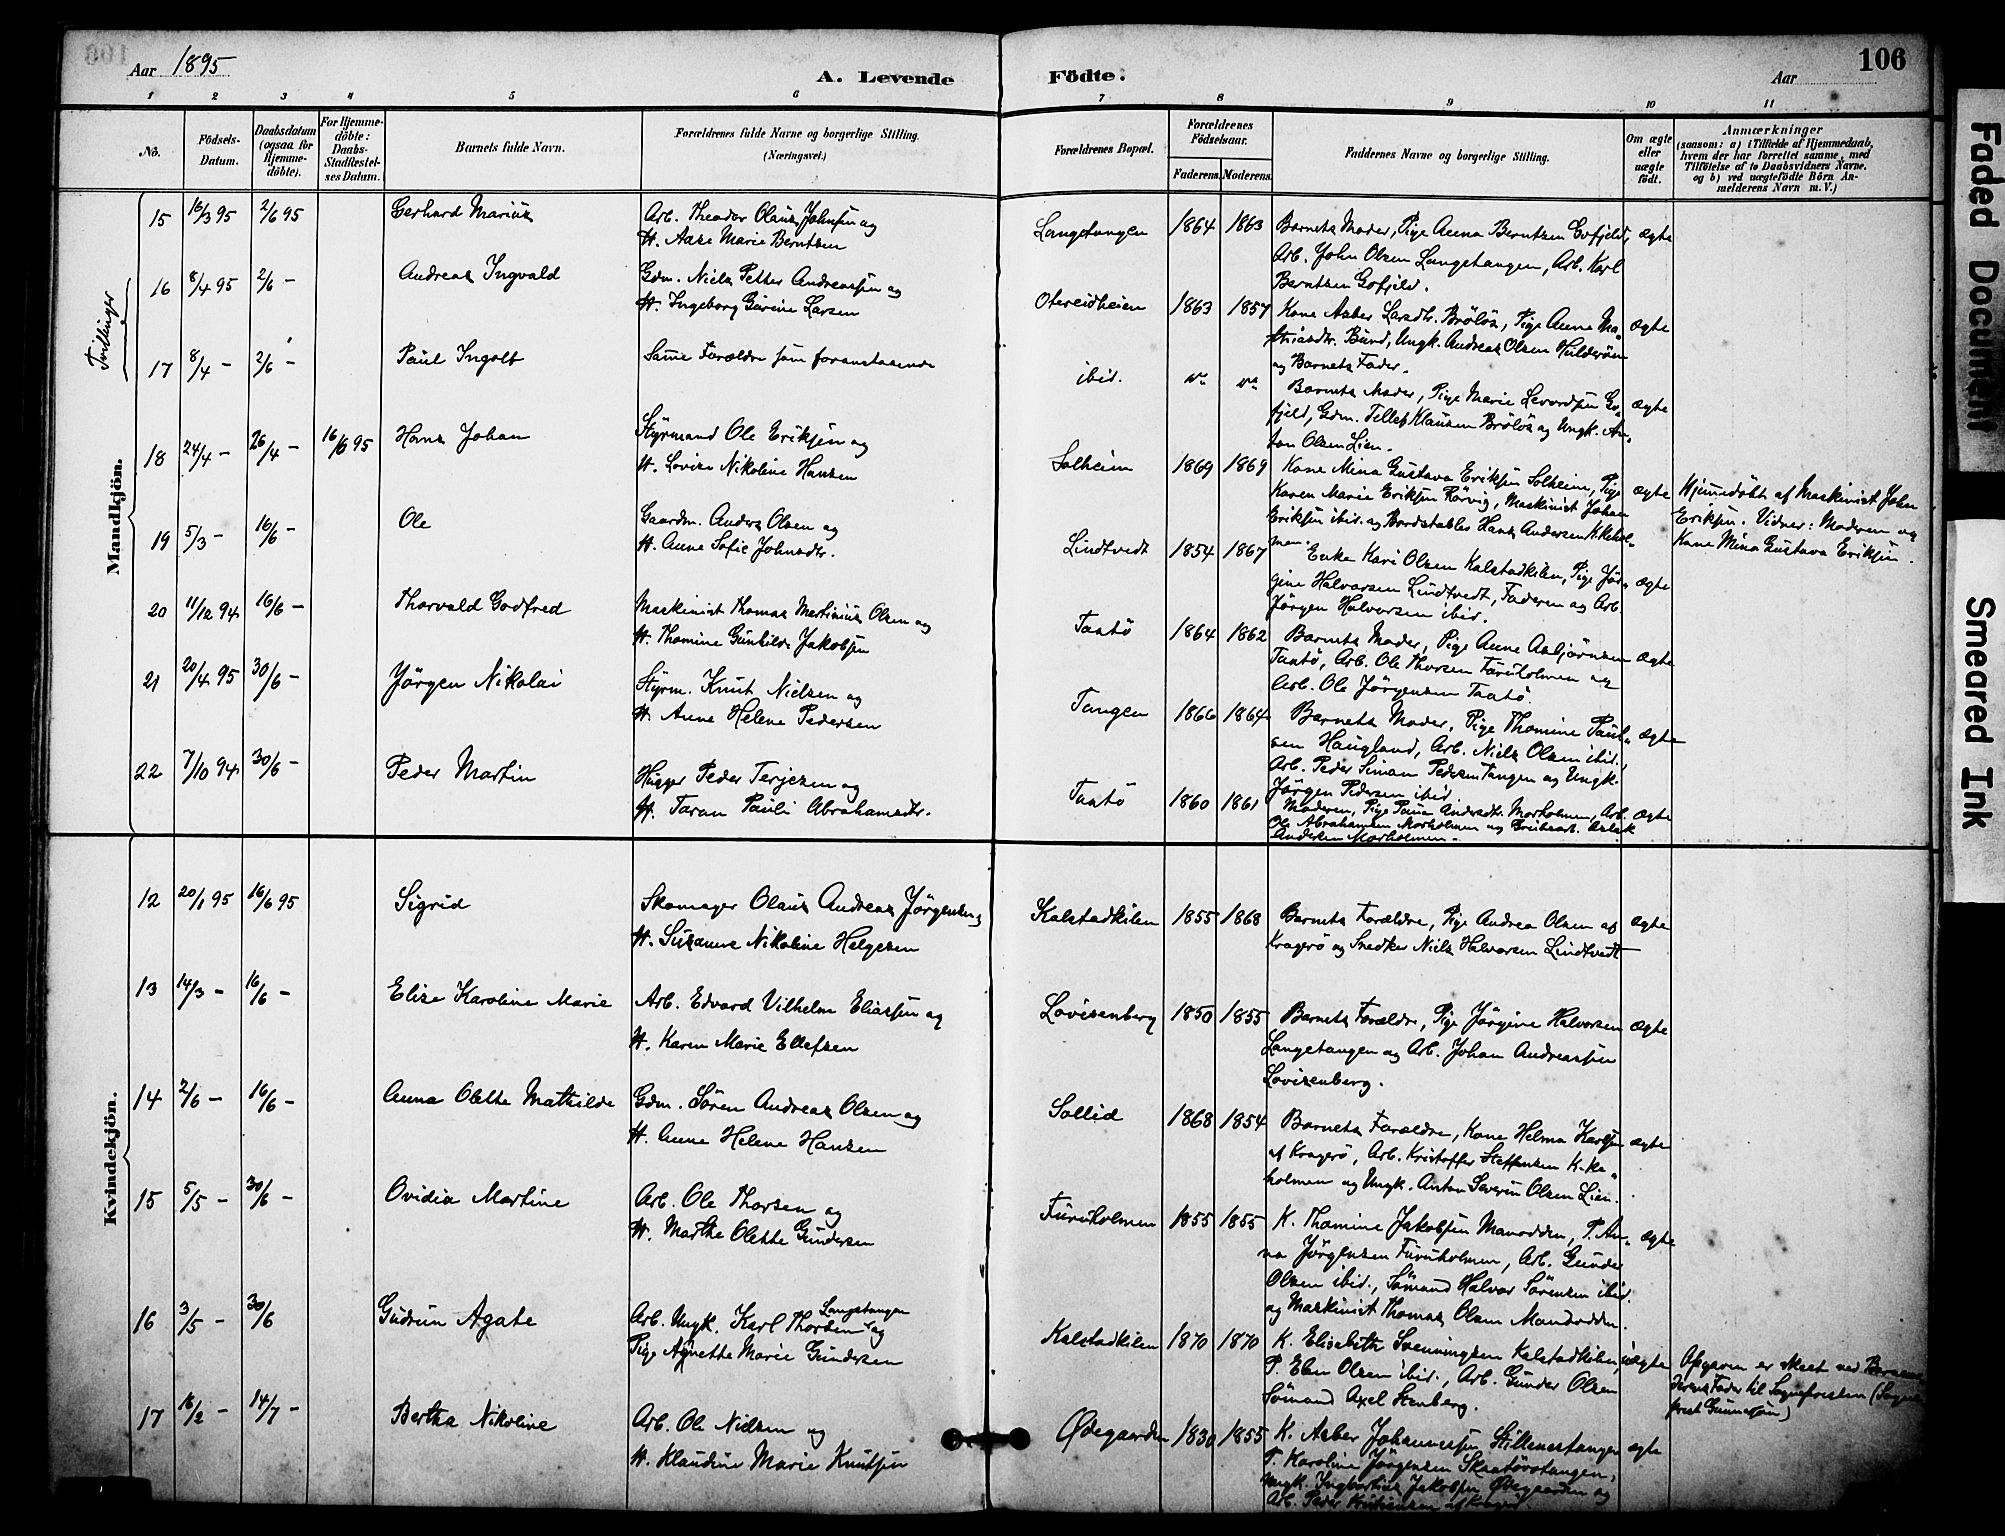 Aar 1895
A. Levende
Födte.
Aar
106
1 2 3 4 5 6 7 8 9 10 11
Nö.
Födsels-Datum.
Daabsdatum (ogsaa for Hjemme-döbte).
For Hjemme-döbte: Daabs-Stadfæstel-ses Datum.
Barnets fulde Navn.
Forældrenes fulde Navne og borgerlige Stilling.
(Næringsvei.)
Forældrenes Bopæl.
Forældrenes Födselsaar.
Faderens. Moderens.
Faddernes Navne og borgerlige Stilling.
Om ægte eller uægte födt.
Anmærkninger
(saasom: a) i Tilfælde af Hjemmedaab,
hvem der har forrettet samme, med
Tilföielse af to Daabsvidners Navne.
og b) ved uægtefödte Börn An-
melderens Navn m. V.)
Mandkjön.
Tvillinger
15 16/3 95 2/6 95 Gerhard Marius Arb. Theodor Olaus Johnsen og
H. Aase Marie Berntsen
Langetangen 1864 1863 Barnets Moder, Pige Anna Berntsen Gofjeld, ægte
Arb. John Olsen Langetangen, Arb. Karl
Berntsen Gofjeld.
16 8/4 95 2/6 – Andreas Ingvald Gdm. Niels Petter Andreassen og
H. Ingeborg Gurine Larsen
Otereidheien 1863 1857 Kone Asber Larsdtr. Bröløs, Pige Anne Ma-
thiasdtr. Bund, Ungk. Andreas Olsen Hulderöen ægte
og Barnets Fader.
17 8/4 – 2/6 – Paul Ingolf Samme Forældre som foranstaaende
ibid. Barnets Moder, Pige Marie Levordsen Go-
fjeld, Gdm. Tellef Klausen Bröløs og Ungk. An- ægte
ton Olsen Lien.
18 24/4 – 26/4 – 16/6 95 Hans Johan Styrmand Ole Eriksen og
H. Lovise Nikoline Hansen
Solheim 1869 1869 Kone Mina Gustava Eriksen Solheim, Pige
Karen Marie Eriksen Rörvig, Maskinist Johan ægte
Eriksen ibid. og Bordstabler Hans Andersen K.kehol-
men.
Hjemmedöbt af Maskinist John
Eriksen. Vidner: Moderen og
Kone Mina Gustava Eriksen.
19 5/3 – 16/6 – Ole Gaardm. Anders Olsen og
H. Anne Sofie Johnsdtr.
Lindtvedt 1854 1867 Enke Kari Olsen Kalstadkilen, Pige Jör-
gine Halvorsen Lindtvedt, Faderen og Arb. ægte
Jörgen Halvorsen ibid.
20 11/12 94 16/6 – Thorvald Godfred Maskinist Thomas Martinius Olsen og
H. Thomine Gunhilde Jakobsen
Taatö 1864 1862 Barnets Moder, Pige Anne Asbjörnsen ægte
Taatö, Arb. Ole Thorsen Furuholmen og
Arb. Ole Jörgensen Taatö.
21 20/4 95 30/6 – Jörgen Nikolai Styrm. Knut Nielsen og
H. Anne Helene Pedersen
Tangen 1866 1864 Barnets Moder, Pige Thomine Paul-
sen Haugland, Arb. Niels Olsen ibid., ægte
Arb. Peder Simon Pedersen Tangen og Ungk.
Jörgen Pedersen ibid.
22 7/10 94 30/6 – Peder Martin Hugger Peder Terjesen og
H. Taran Pauli Abrahamsdtr.
Taatö 1860 1861 Moderen, Pige Paua Andersdtr. Morholmen, Arb. ægte
Ole Abrahamsen Morholmen og Aslak
Andersen Morholmen.
Kvindekjön.
12 20/1 95 16/6 95 Sigrid Skomager Olaus Andreas Jörgensen og
H. Susanne Nikoline Helgesen
Kalstadkilen 1855 1868 Barnets Forældre, Pige Andrea Olsen af ægte
Kragerö og Snedker Niels Halvorsen Lindtvedt
13 14/3 – 16/6 – Elise Karoline Marie Arb. Edvard Vilhelm Eliassen og
H. Karen Marie Ellefsen
Lovisenberg 1850 1855 Barnets Forældre, Pige Jörgine Halvorsen ægte
Langetangen og Arb. Johan Andreassen
Lovisenberg.
14 2/6 – 16/6 – Anna Olette Mathilde Gdm. Sören Andreas Olsen og
H. Anne Helene Hansen
Sollid 1868 1854 Barnets Forældre, Kone Helma Karlsen ægte
af Kragerö, Arb. Kristoffer Steffensen K.ke-
holmen og Ungk. Anton Severin Olsen Lien.
15 5/5 – 30/6 – Ovidia Martine Arb. Ole Thorsen og
H. Marthe Olette Gundersen
Furuholmen 1855 1855 K. Thomine Jakobsen Manodden, P. An- ægte
na Jörgensen Furuholmen, Arb. Gunder
Olsen ibid., Sömand Halvor Sörensen ibid.
og Maskinist Thomas Olsen Manodden.
16 3/5 – 30/6 Gudrun Agate Arb. Ungk. Karl Thorsen Langetangen og
Pige Agnette Marie Gundersen
Kalstadkilen 1870 1870 K. Elisabeth Svenningsen Kalstadkilen, uægte
P. Elen Olsen ibid., Arb. Gunder Olsen
Sömand Axel Stenberg.
Opgaven er skeet ved Barne-
fader til Sognepresten (Sogne-
prest Gunnesön)
17 16/2 – 14/7 – Bertha Nikoline Arb. Ole Nielsen og
H. Klaudine Marie Knutsen
Ødegaarden 1830 1855 K. Asber Johannessen Stillenestangen ægte
P. Karoline Jörgensen Skaatöestangen,
Ungk. Ingbertius Jakobsen Ødegaarden og
Arb. Peder Kristiansen af Kragerö.
Faded Document
Smeared Ink